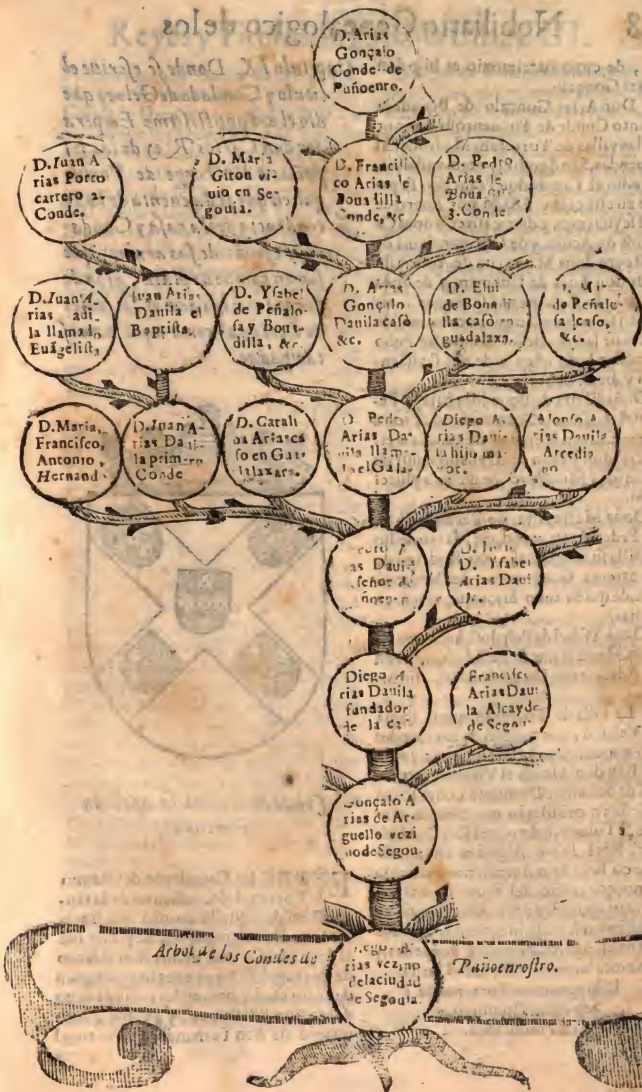 D. Arias
Gonçalo
Conde de
Puñoenro.
D. Juan A
rias Porto
carrero 2.
Conde.
D. Maria
Giron vi
uio en Se
gouia.
D. Francis
co Arias de
Bouadilla
Conde, &c
D. Pedro
Arias de
Boua
3. Conde
D. Iuan A-
rias
la llamado
Euãgelista
Iuan Arias
Dauila el
Baptista.
D. Ysabel
de Peñalo-
sa y Boua-
dilla, &c.
D. Arias
Gonçalo
Dauila casò
&c.
D. Elui
de Bouadi
lla casò en
guadalaxa.
de Peñalo-
sa casò,
&c.
D. Maria,
Francisco,
Antonio,
Hernand
D. Iuan A-
rias Daui-
la primero
Conde
D. Catali
na Arias ca
sò en Gua
dalaxara.
D. Pedro
Arias Da
uila llama
do el Gala
Diego A-
rias Daui-
la hijo ma
yor.
Alonso A
rias Dauila
Arcedia
no
Pedro A
rias Dauil
señor de
D. Ysabel
Arias Daui
Diego A
rias Dauila
fundador
de la ca
Francisco
Arias Daui
la Alcayde
de Segou
Gonçalo A
rias de Ar
guello vezi
no de Segou.
Arbol de los Condes de Puñoenrostro.
Diego A
rias vezino
de la ciudad
de Segouia